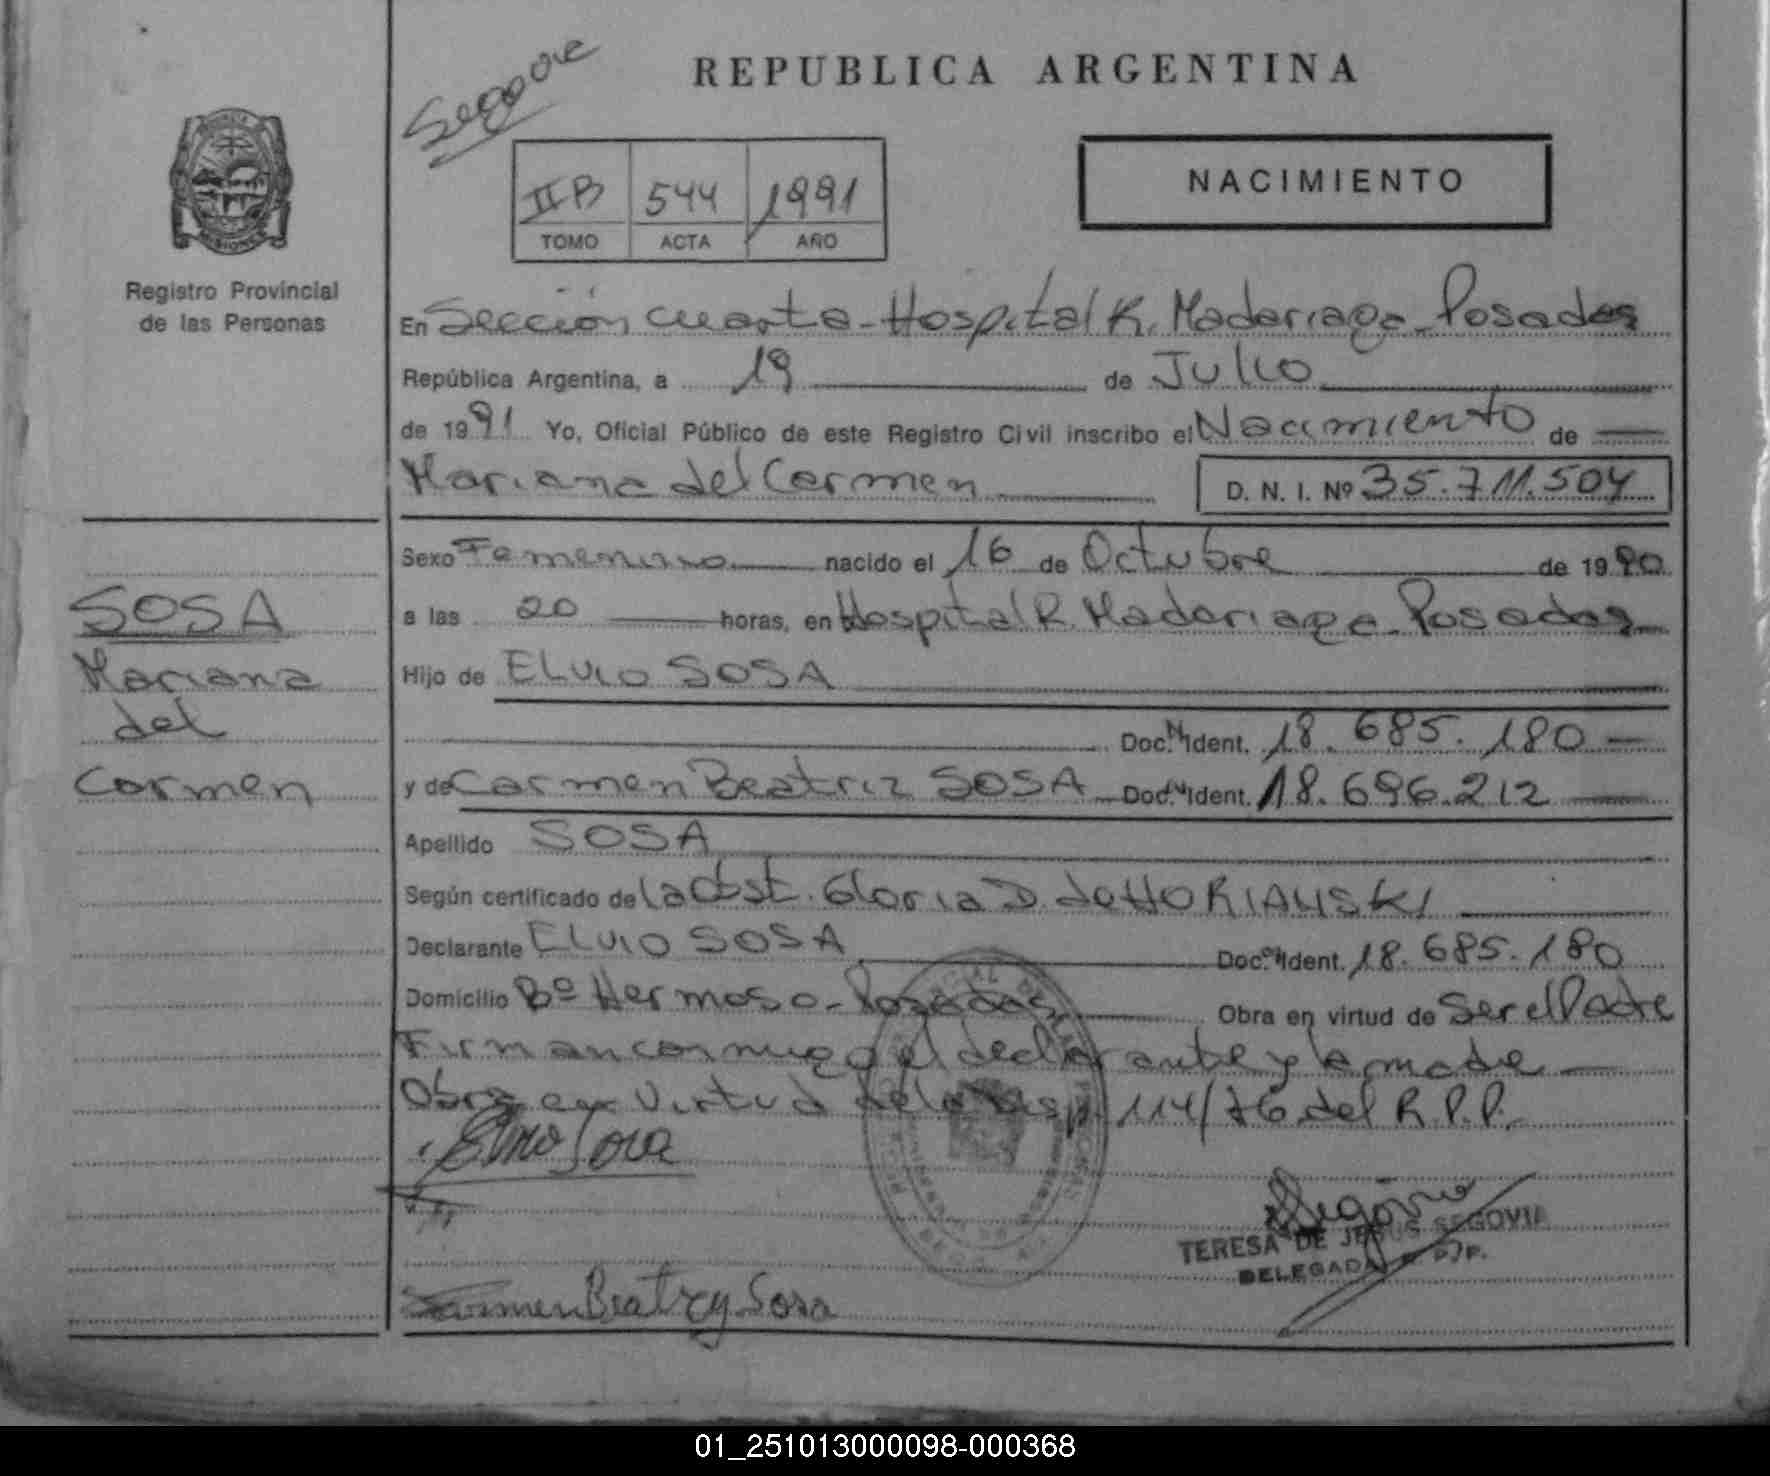 REPUBLICA ARGENTINA
NACIMIENTO
II B 544 1991
TOMO ACTA AÑO
MISIONES
Registro Provincial
de las Personas
En Sección cuarta - Hospital R. Madariaga - Posadas
República Argentina, a 19 de Julio
de 1991 Yo, Oficial Público de este Registro Civil inscribo el Nacimiento de
Mariana del Carmen D. N. I. Nº 35.711.504
Sexo Femenino nacido el 16 de Octubre de 1990
a las 20 horas, en Hospital R. Madariaga - Posadas
Hijo de ELVIO SOSA
Doc. Ident. 18.685.180
y de Carmen Beatriz SOSA Doc. Ident. 18.696.212
Apellido SOSA
Según certificado de la Obst. Gloria D. de
Declarante ELVIO SOSA Doc. Ident. 18.685.180
Domicilio Bº Hermoso - Posadas Obra en virtud de Ser el Padre
Firman conmigo el declarante y la madre
Obra en Virtud de la Disp. 114/76 del R.P.P.
Elvio Sosa
TERESA DE JESUS SEGOVIA
DELEGADA R. P. P.
Carmen Beatriz Sosa
SOSA
Mariana
del
Carmen
01_251013000098-000368